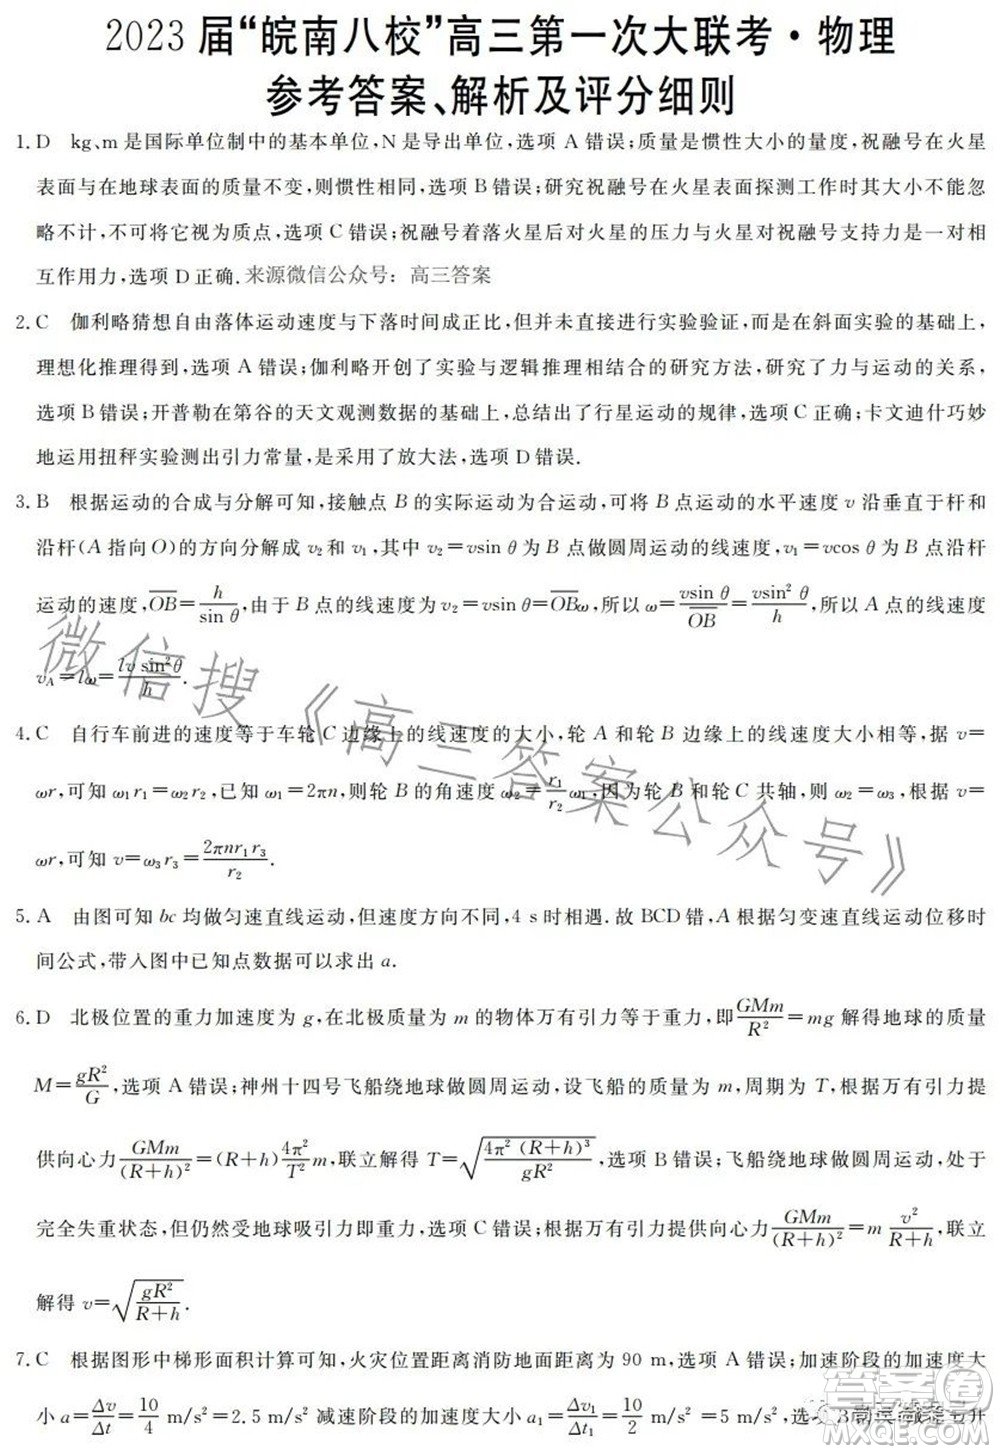 2023届“皖南八校”高三第一次大联考·物理
参考答案、解析及评分细则
1. D kg、m 是国际单位制中的基本单位,N 是导出单位,选项 A 错误;质量是惯性大小的量度,祝融号在火星
表面与在地球表面的质量不变,则惯性相同,选项 B 错误;研究祝融号在火星表面探测工作时其大小不能忽
略不计,不可将它视为质点,选项 C 错误;祝融号着落火星后对火星的压力与火星对祝融号支持力是一对相
互作用力,选项 D 正确. 来源微信公众号：高三答案
2. C 伽利略猜想自由落体运动速度与下落时间成正比,但并未直接进行实验验证,而是在斜面实验的基础上,
理想化推理得到,选项 A 错误;伽利略开创了实验与逻辑推理相结合的研究方法,研究了力与运动的关系,
选项 B 错误;开普勒在第谷的天文观测数据的基础上,总结出了行星运动的规律,选项 C 正确;卡文迪什巧妙
地运用扭秤实验测出引力常量,是采用了放大法,选项 D 错误.
3. B 根据运动的合成与分解可知,接触点 B 的实际运动为合运动,可将 B 点运动的水平速度 v 沿垂直于杆和
沿杆(A 指向 O)的方向分解成 v₂ 和 v₁,其中 v₂=vsin θ 为 B 点做圆周运动的线速度,v₁=vcos θ 为 B 点沿杆
运动的速度,OB=h/sin θ,由于 B 点的线速度为 v₂=vsin θ=OBω,所以 ω=vsin θ/OB=vsin² θ/h,所以 A 点的线速度
v_A=lω=lv sin²θ/h.
4. C 自行车前进的速度等于车轮 C 边缘上的线速度的大小,轮 A 和轮 B 边缘上的线速度大小相等,据 v=
ωr,可知 ω₁r₁=ω₂r₂,已知 ω₁=2πn,则轮 B 的角速度 ω₂=r₁/r₂ω₁,因为轮 B 和轮 C 共轴,则 ω₂=ω₃,根据 v=
ωr,可知 v=ω₃r₃=2πnr₁r₃/r₂.
5. A 由图可知 bc 均做匀速直线运动,但速度方向不同,4 s 时相遇. 故 BCD 错,A 根据匀变速直线运动位移时
间公式,带入图中已知点数据可以求出 a.
6. D 北极位置的重力加速度为 g,在北极质量为 m 的物体万有引力等于重力,即GMm/R²=mg 解得地球的质量
M=gR²/G,选项 A 错误;神州十四号飞船绕地球做圆周运动,设飞船的质量为 m,周期为 T,根据万有引力提
供向心力GMm/(R+h)²=(R+h)4π²/T²m,联立解得 T=√(4π²(R+h)³/gR²),选项 B 错误;飞船绕地球做圆周运动,处于
完全失重状态,但仍然受地球吸引力即重力,选项 C 错误;根据万有引力提供向心力GMm/(R+h)²=m v²/(R+h),联立
解得 v=√(gR²/(R+h)).
7. C 根据图形中梯形面积计算可知,火灾位置距离消防地面距离为 90 m,选项 A 错误;加速阶段的加速度大
小 a=Δv/Δt=10/4 m/s²=2.5 m/s² 减速阶段的加速度大小 a₁=Δv₁/Δt₁=10/2 m/s²=5 m/s²,选项 B
微信搜《高三答案公众号》
答案圈
MXQE.COM